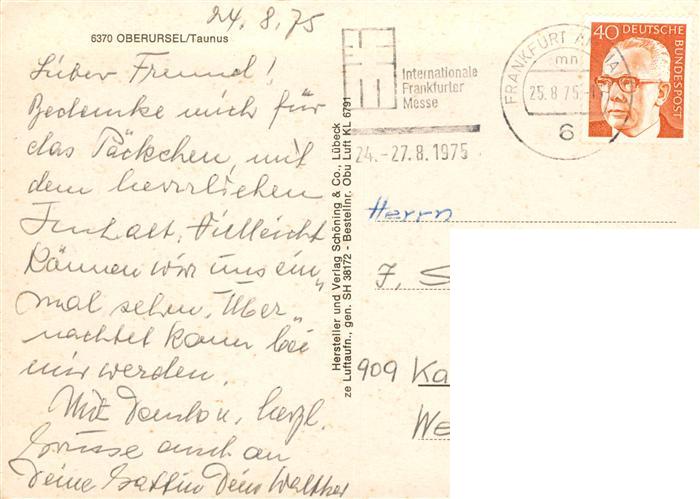 24.8.75
6370 OBERURSEL/Taunus
Lieber Freund!
Bedanke mich für
das Päckchen, mit
dem herrlichen
Inhalt. Vielleicht
können wir uns ein„
mal sehen. Über„
nachtet kann bei
mir werden.
Mit Dank u. herzl.
Grüsse auch an
Deine Gattin Dein Walther
Hersteller und Verlag Schöning & Co., Lübeck
ze Luftaufn., gen. SH 38172 - Bestellnr. Obu Luft KL 6791
Internationale
Frankfurter
Messe
24.-27.8.1975
FRANKFURT AM MAIN
mn
25.8.75
6
40 DEUTSCHE
BUNDESPOST
Herrn
J. S
909 Ka
We